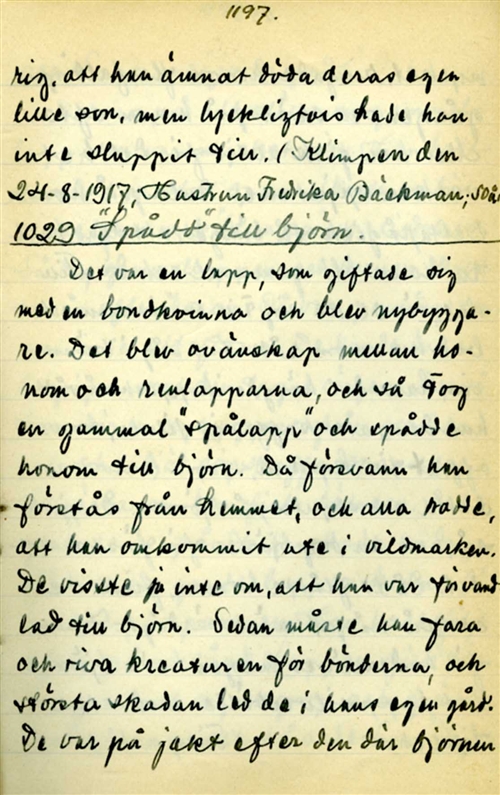 1197.
rig, att han ämnat döda deras egen
lille son, men lyckligtvis hade han
inte sluppit till. (Klimpen den
24-8-1917, Hustrun Fredrika Bäckman; 50 år
1029 "Spådd" till björn.
Det var en lapp, som giftade sig
med en bondkvinna och blev nybygga-
re. Det blev ovänskap mellan ho-
nom och renlapparna, och så tog
en gammal "spålapp" och spådde
honom till björn. Då försvann han
förstås från hemmet, och alla trodde,
att han omkommit ute i vildmarken.
De visste ju inte om, att han var förvand
lad till björn. Sedan måste han fara
och riva kreaturen för bönderna, och
största skadan led de i hans egen gård.
De var på jakt efter den där björnen